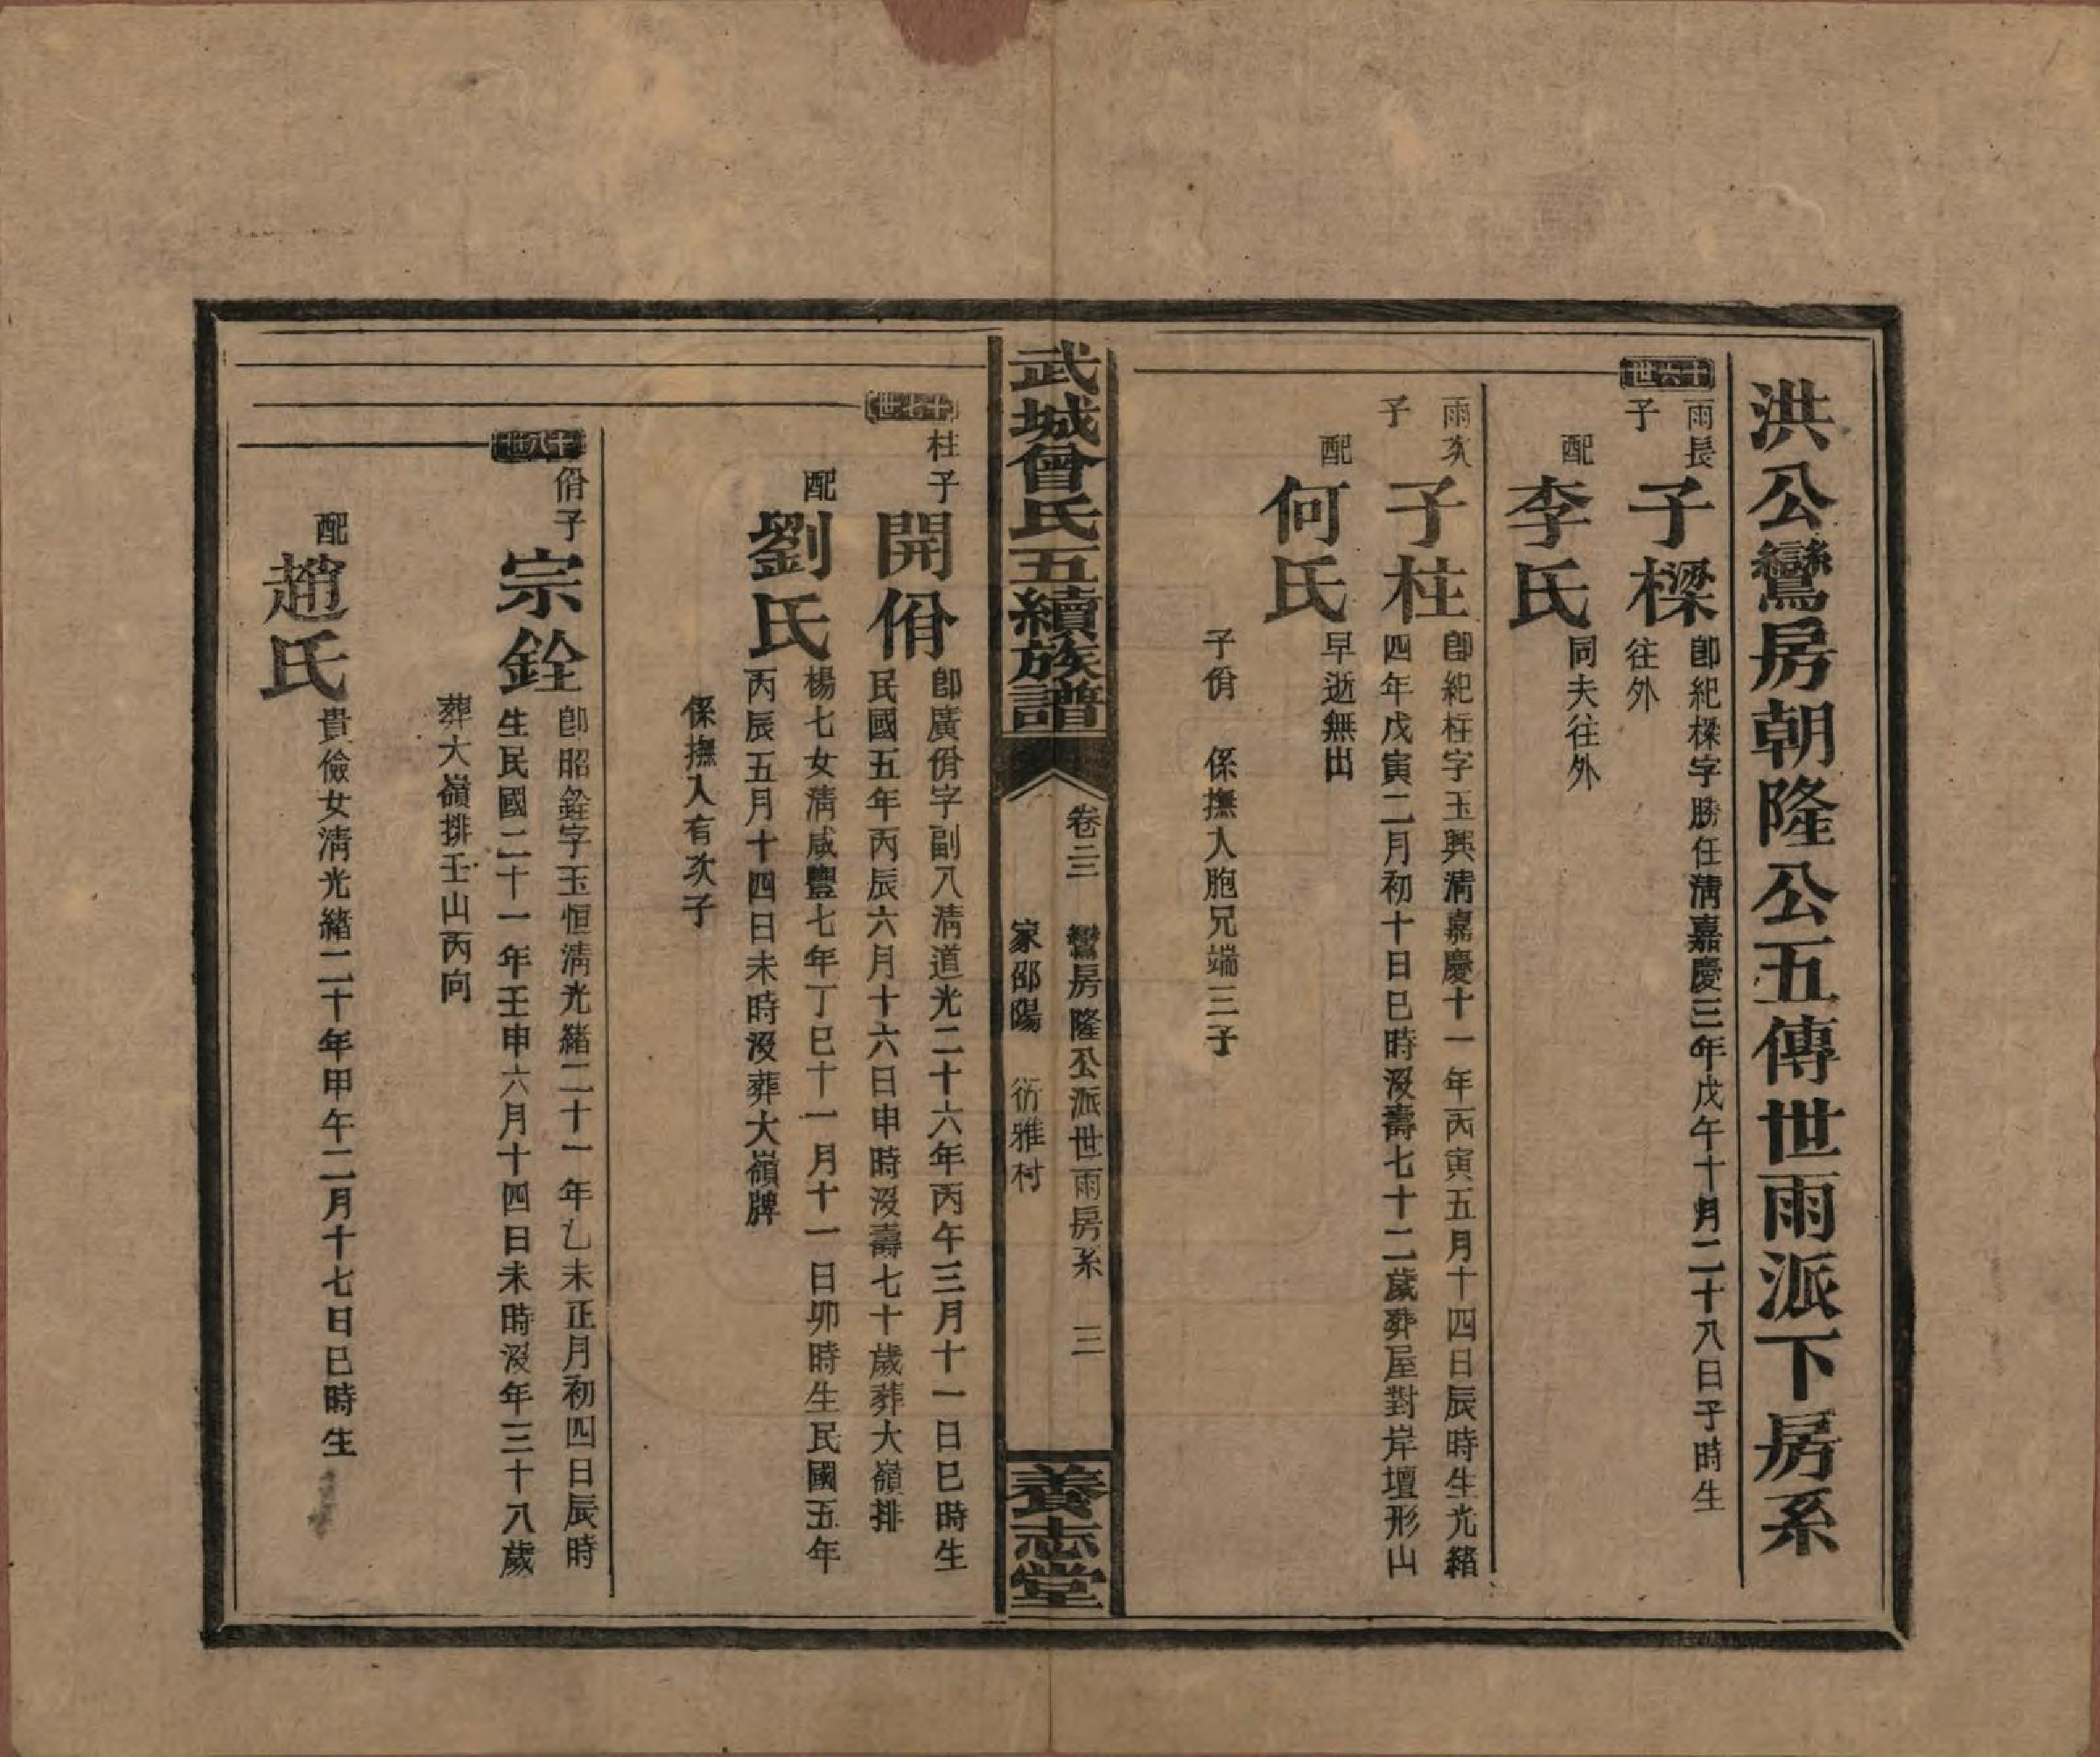 洪公鸞房朝隆公五傳世雨派下房系
十六世
雨長子
子樑
卽紀樑字勝任淸嘉慶三年戊午十月二十八日子時生
往外
配
李氏
同夫往外
雨次子
子柱
卽紀柱字玉興淸嘉慶十一年丙寅五月十四日辰時生光緒
四年戊寅二月初十日巳時沒壽七十二歲葬屋對岸壇形山
配
何氏
早逝無出
子佾　係撫入胞兄端三子
武城曾氏五續族譜
卷三三　鸞房隆公派世雨房系　三
家邵陽　衍雅村
養志堂
十七世
柱子
開佾
卽廣佾字副八淸道光二十六年丙午三月十一日巳時生
民國五年丙辰六月十六日申時沒壽七十歲葬大嶺排
配
劉氏
楊七女淸咸豐七年丁巳十一月十一日卯時生民國五年
丙辰五月十四日未時沒葬大嶺牌
係撫入有次子
十八世
佾子
宗銓
卽昭銓字玉恒淸光緒二十一年乙未正月初四日辰時
生民國二十一年壬申六月十四日未時沒年三十八歲
葬大嶺排壬山丙向
配
趙氏
貴儉女淸光緒二十年甲午二月十七日巳時生